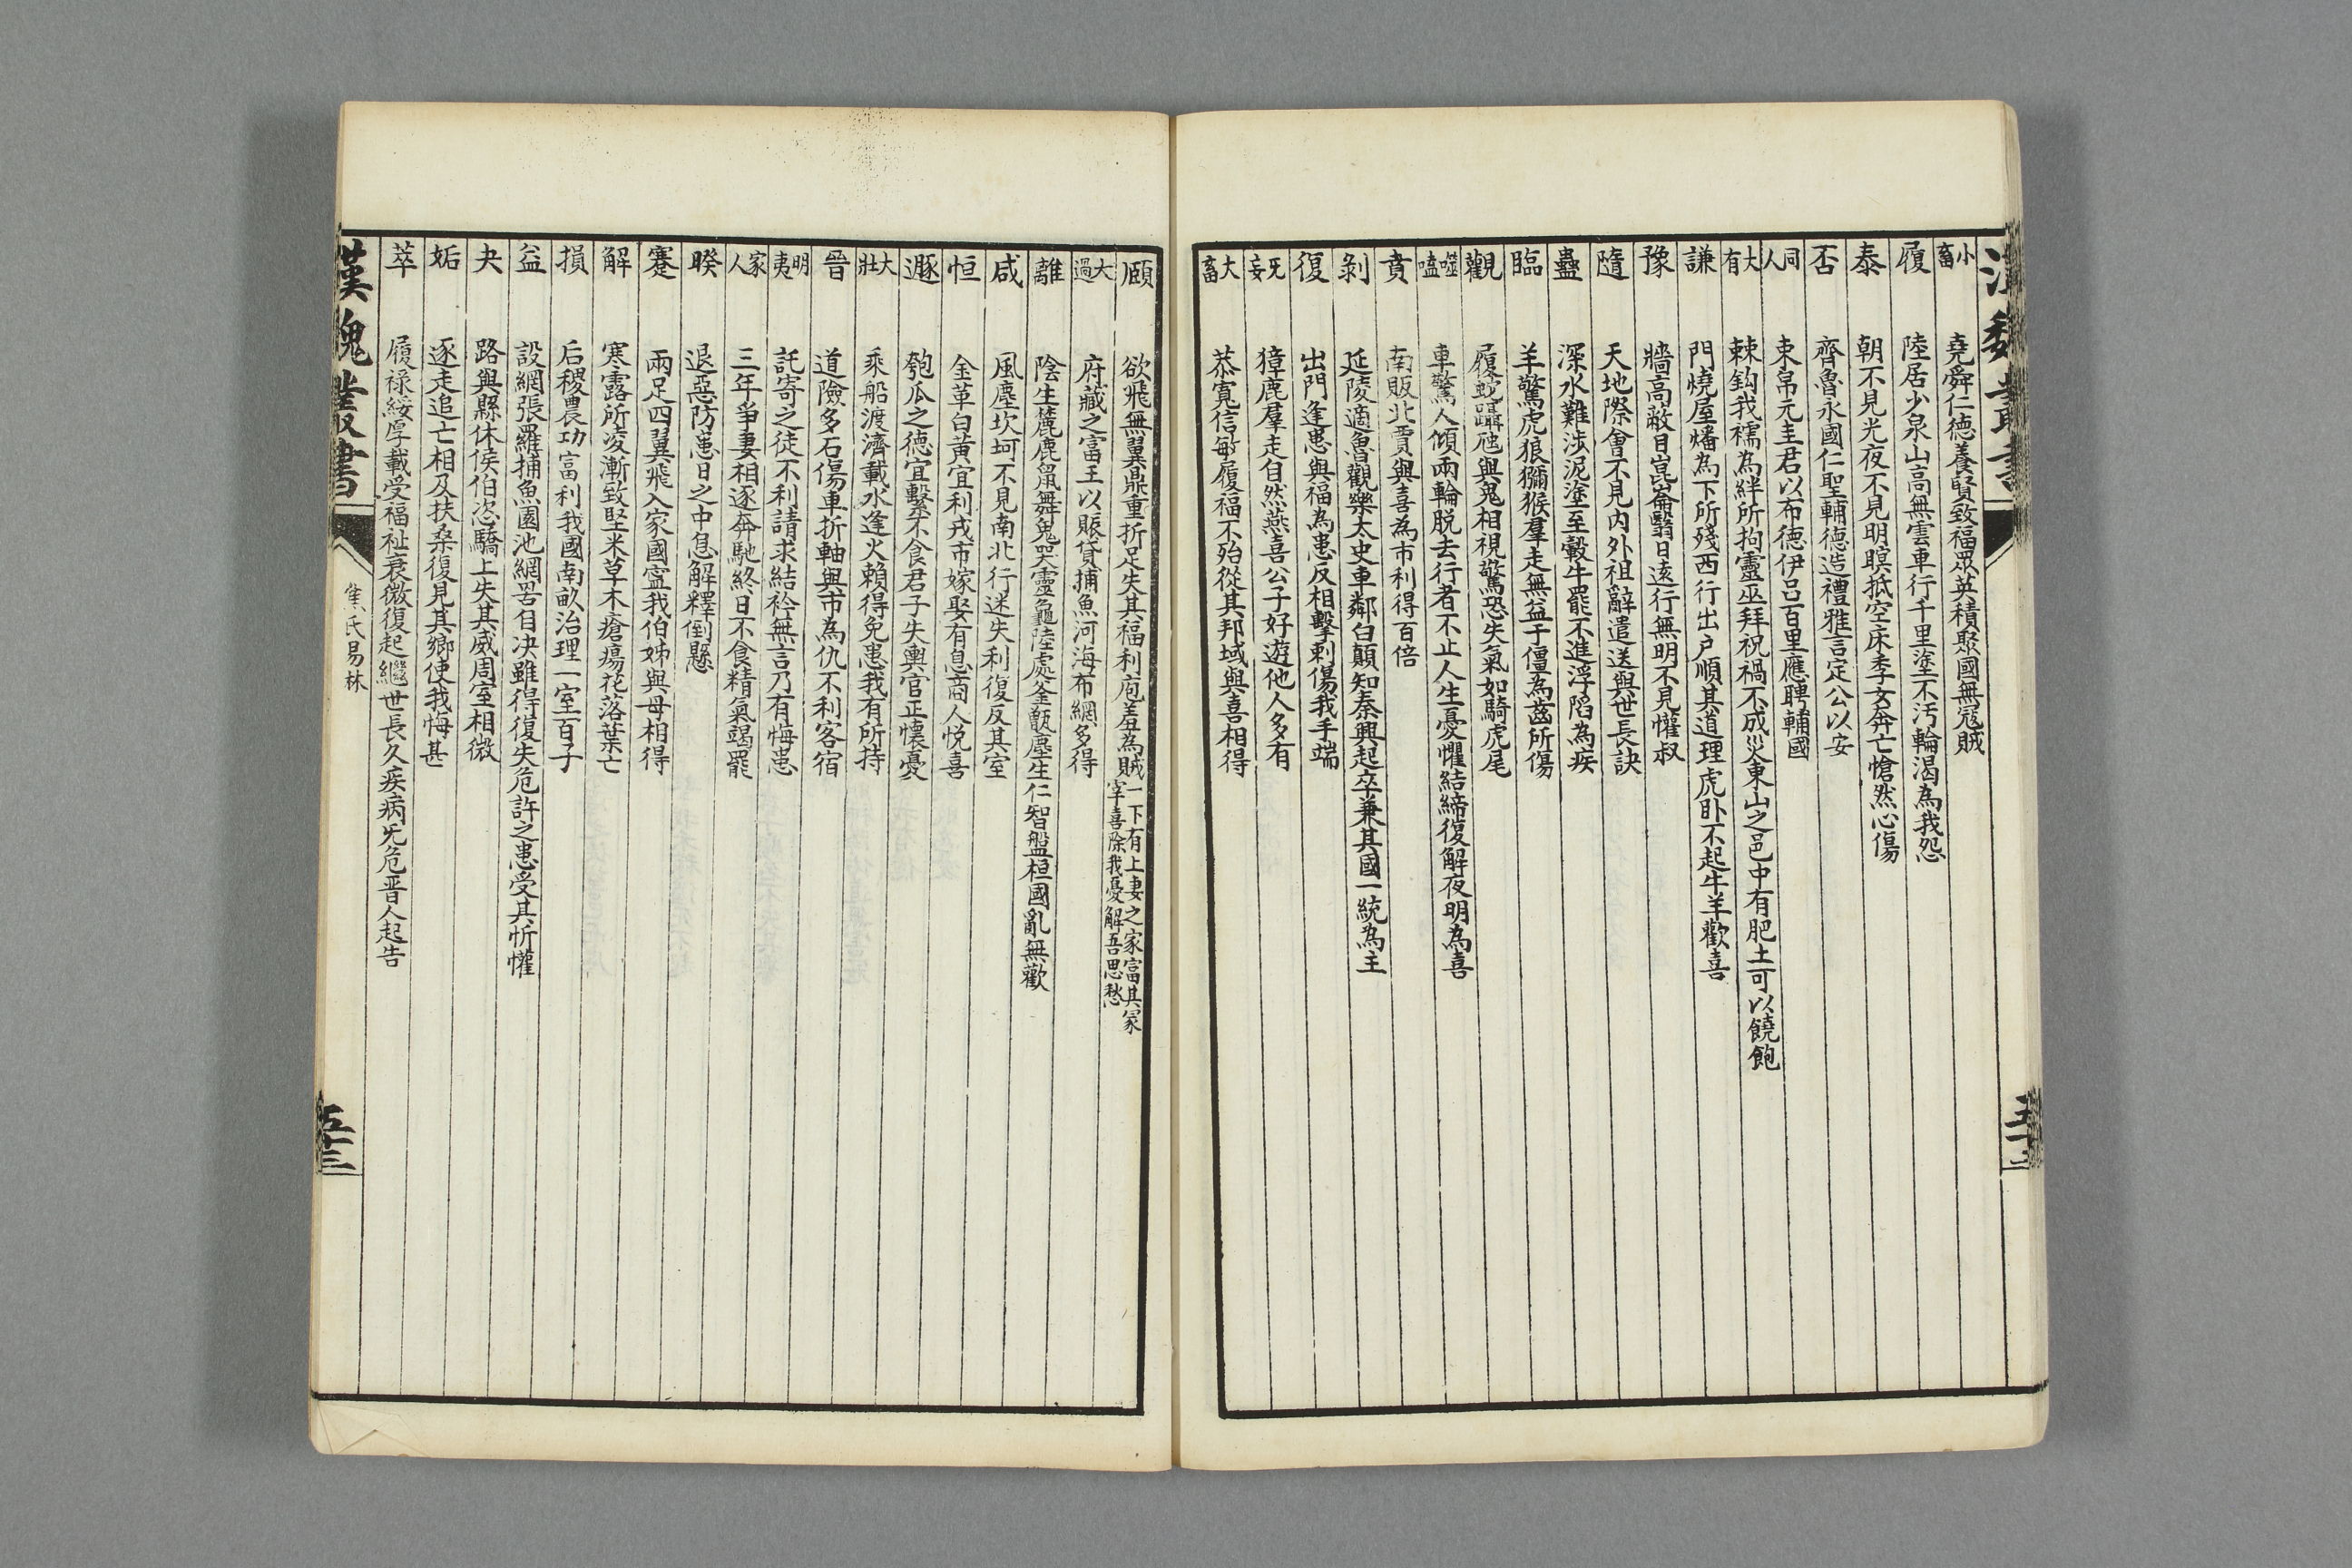 漢魏叢書
小畜 堯舜仁德養賢致福眾英積聚國無寇賊
履 陸居少泉山高無雲車行千里塗不汚輪渴為我怨
泰 朝不見光夜不見明瞑抵空床季女奔亡愴然心傷
否 齊魯永國仁聖輔德造禮雅言定公以安
同人 束帛元圭君以布德伊呂百里應聘輔國
大有 棘鈎我襦為絆所拘靈巫拜祝禍不成災東山之邑中有肥土可以饒飽
謙 門燒屋燔為下所殘西行出戶順其道理虎卧不起牛羊歡喜
豫 牆高敝目崑崙翳日遠行無明不見懽叔
隨 天地際會不見內外祖辭遣送與世長訣
蠱 深水難涉泥塗至轂牛罷不進浮陷為疾
臨 羊驚虎狼獼猴羣走無益于僵為齒所傷
觀 履蛇躡虺與鬼相視驚恐失氣如騎虎尾
噬嗑 車驚人傾兩輪脫去行者不止人生憂懼結締復解夜明為喜
賁 南販北賈與喜為市利得百倍
剝 延陵適魯觀樂太史車鄰白顛知秦興起卒兼其國一統為主
復 出門逢患與福為患反相擊刺傷我手端
旡妄 獐鹿羣走自然燕喜公子好遊他人多有
大畜 恭寬信敏履福不殆從其邦域與喜相得
頤 欲飛無翼鼎重折足失其福利庖羞為賊一下有上妻之家富其冢宰喜除我憂解吾思愁
大過 府藏之富王以賑貸捕魚河海布網多得
離 陰生麓鹿鼠舞鬼哭靈龜陸處釜甑塵生仁智盤桓國亂無歡
咸 風塵坎坷不見南北行迷失利復反其室
恒 金革白黃宜利戎市嫁娶有息商人悅喜
遯 匏瓜之德宜繫不食君子失輿官正懷憂
大壯 乘船渡濟載水逢火賴得免患我有所持
晉 道險多石傷車折軸與市為仇不利客宿
明夷 託寄之徒不利請求結衿無言乃有悔患
家人 三年爭妻相逐奔馳終日不食精氣竭罷
睽 退惡防患日之中息解釋倒懸
蹇 兩足四翼飛入家國寍我伯姊與母相得
解 寒露所凌漸致堅氷草木瘡瘍花落葉亡
損 后稷農功富利我國南畝治理一室百子
益 設網張羅捕魚園池網罟自决雖得復失危許之患受其忻懽
夬 路與縣休侯伯恣驕上失其威周室相微
姤 逐走追亡相及扶桑復見其鄉使我悔甚
萃 履祿綏厚載受福祉衰微復起繼世長久疾病旡危晋人起告
漢魏叢書 焦氏易林 五十三